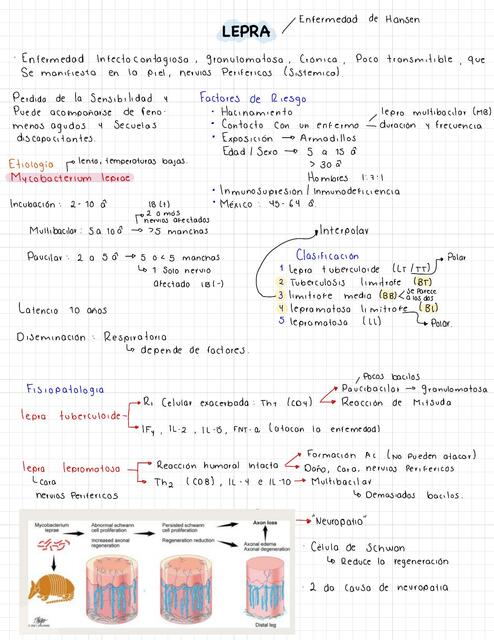 LEPRA
Enfermedad de Hansen
· Enfermedad Infectocontagiosa, granulomatosa, Crónica, Poco transmitible, que
Se manifiesta en la piel, nervios Perifericos (Sistemico)
Perdida de la Sensibilidad y
Puede acompañarse de feno-
menos agudos y Secuelas
discapacitantes.
Factores de Riesgo
· Hacinamiento
· Contacto con un enfermo
lepra multibacilar (MB)
duración y frecuencia
· Exposición → Armadillos
Edad / Sexo → 5 a 15 â
> 30 â
Hombres 1:3:1
· Inmunosupresion / Inmunodeficiencia
· México: 45-64 â.
Etiologia
lento, temperaturas bajas.
Mycobacterium leprae
Incubación: 2-10 â
IB (+)
2 o más
nervios afectados
Multibacilar: 5 a 10 â → >5 manchas
Paucilar: 2 a 5 â → 5 o < 5 manchas
↳ 1 Solo nervio
afectado IB(-)
Latencia 10 años
Diseminación: Respiratoria
↳ depende de factores.
Interpolar
Clasificación
1 lepra tuberculoide (LT/TT)
Polar
2 Tuberculosis limitrofe (BT)
3 limitrofe media (BB)
se parece
a los dos
4 lepromatosa limitrofe (BL)
5 lepromatosa (LL)
Polar.
Fisiopatologia
lepra tuberculoide
RI Celular exacerbada: Th1 (CD4)
Pocos bacilos
Paucibacilar → granulomatosa
Reacción de Mitsuda
IFγ, IL-2, IL-15, FNT-α (atacan la enfermedad)
lepra lepromatosa
↳ Cara
nervios Perifericos
Reacción humoral intacta
Formación Ac (No pueden atacar)
Daño, Cara, nervios Perifericos
Th2 (CD8), IL-4 e IL-10 → Multibacilar
↳ Demasiados bacilos.
Mycobacterium
leprae
Abnormal schwann
cell proliferation
Increased axonal
regeneration
Persisted schwann
cell proliferation
Regeneration reduction
Axon loss
Axonal edema
Axonal degeneration
Distal leg
"Neuropatia"
· Célula de Schwan
↳ Reduce la regeneración
· 2 da Causa de neuropatia